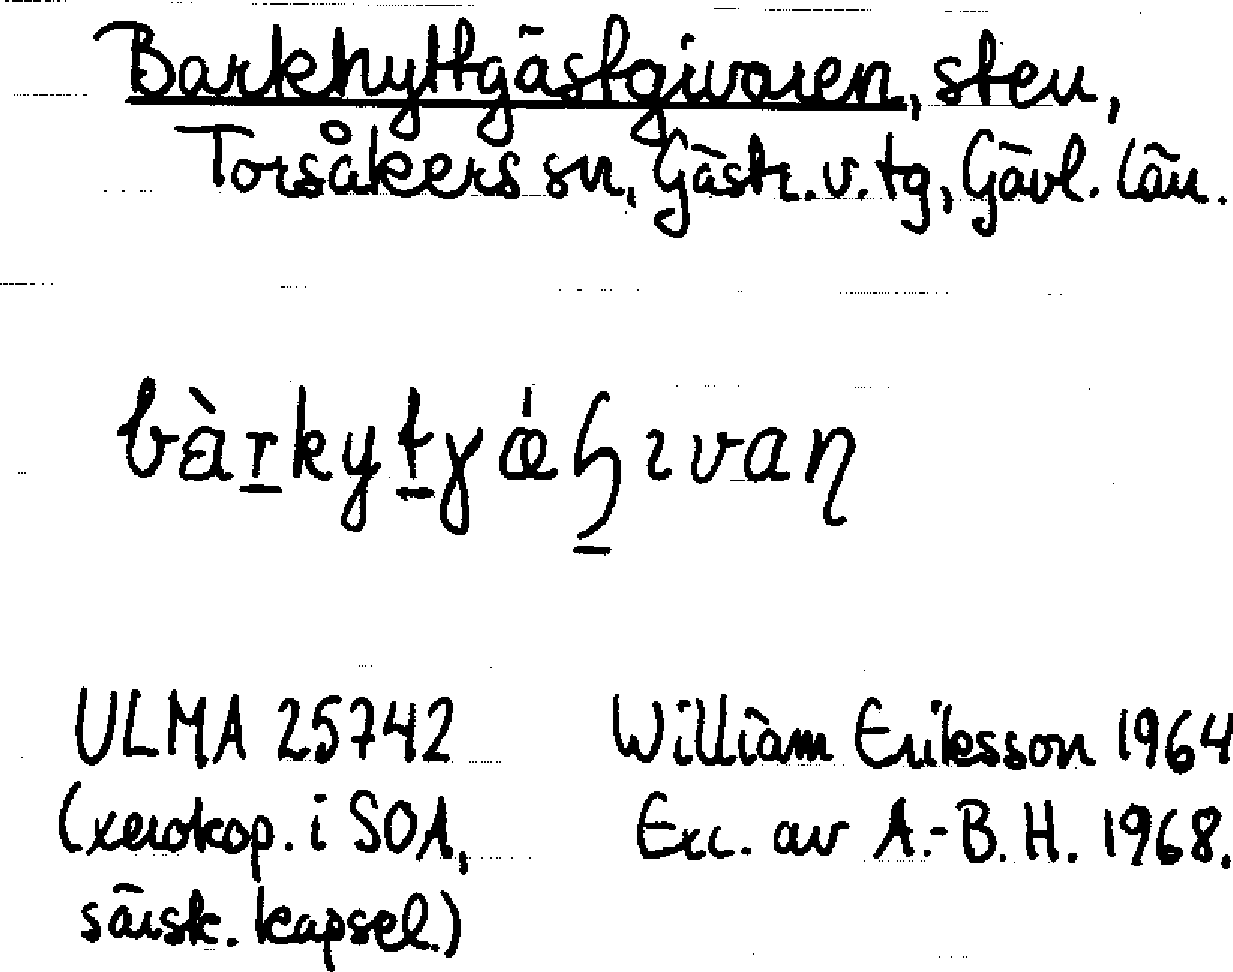 Barkhyttgästgivaren, sten,
Torsåkers sn, Gästr. v. tg, Gävl. län.
ULMA 25742
(xerokop. i SOA,
särsk. kapsel.)
William Eriksson 1964
Exc. av A.-B. H. 1968.